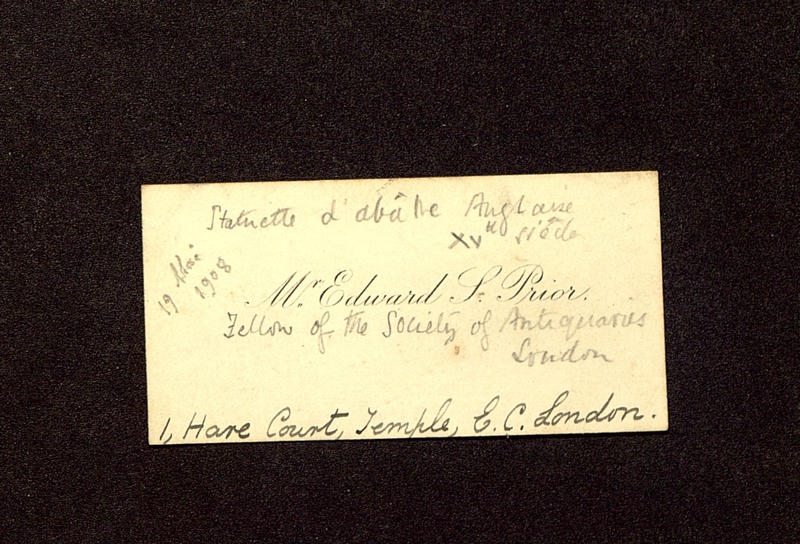 Statuette d'abâtre Anglaise
XVe siècle
19 Mai
1908
Mr. Edward S. Prior.
Fellow of the Society of Antiquaries
London
1, Hare Court, Temple, E.C. London.